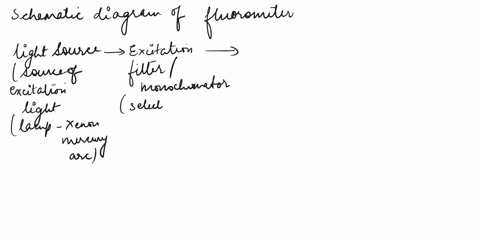 Schematic diagram of fluorometer
light source → Excitation →
(source of filter/
Excitation monochromator
light (select
(lamp - xenon
mercury
arc)